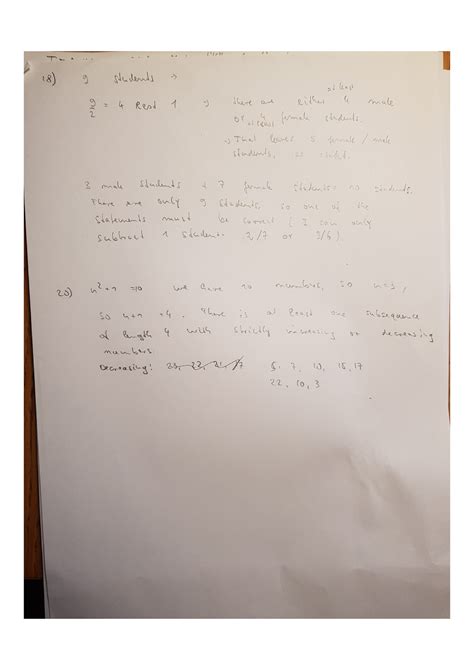 18) 9 students →
at least
9/2 = 4 Rest 1 → there are either 4 male
or at least 4 female students.
→ That leaves 5 female / male
students, as
3 male students + 7 female students = 10 students.
There are only 9 students, so one of the
statements must be correct ( I can only
subtract 1 student 2/7 or 3/6)
20) n²+1 =10 we have 10 numbers, so n=3,
so n+1 =4. There is at least one subsequence
of length 4 with strictly increasing or decreasing
numbers
Decreasing: 5, 7, 10, 15, 17
22, 10, 3